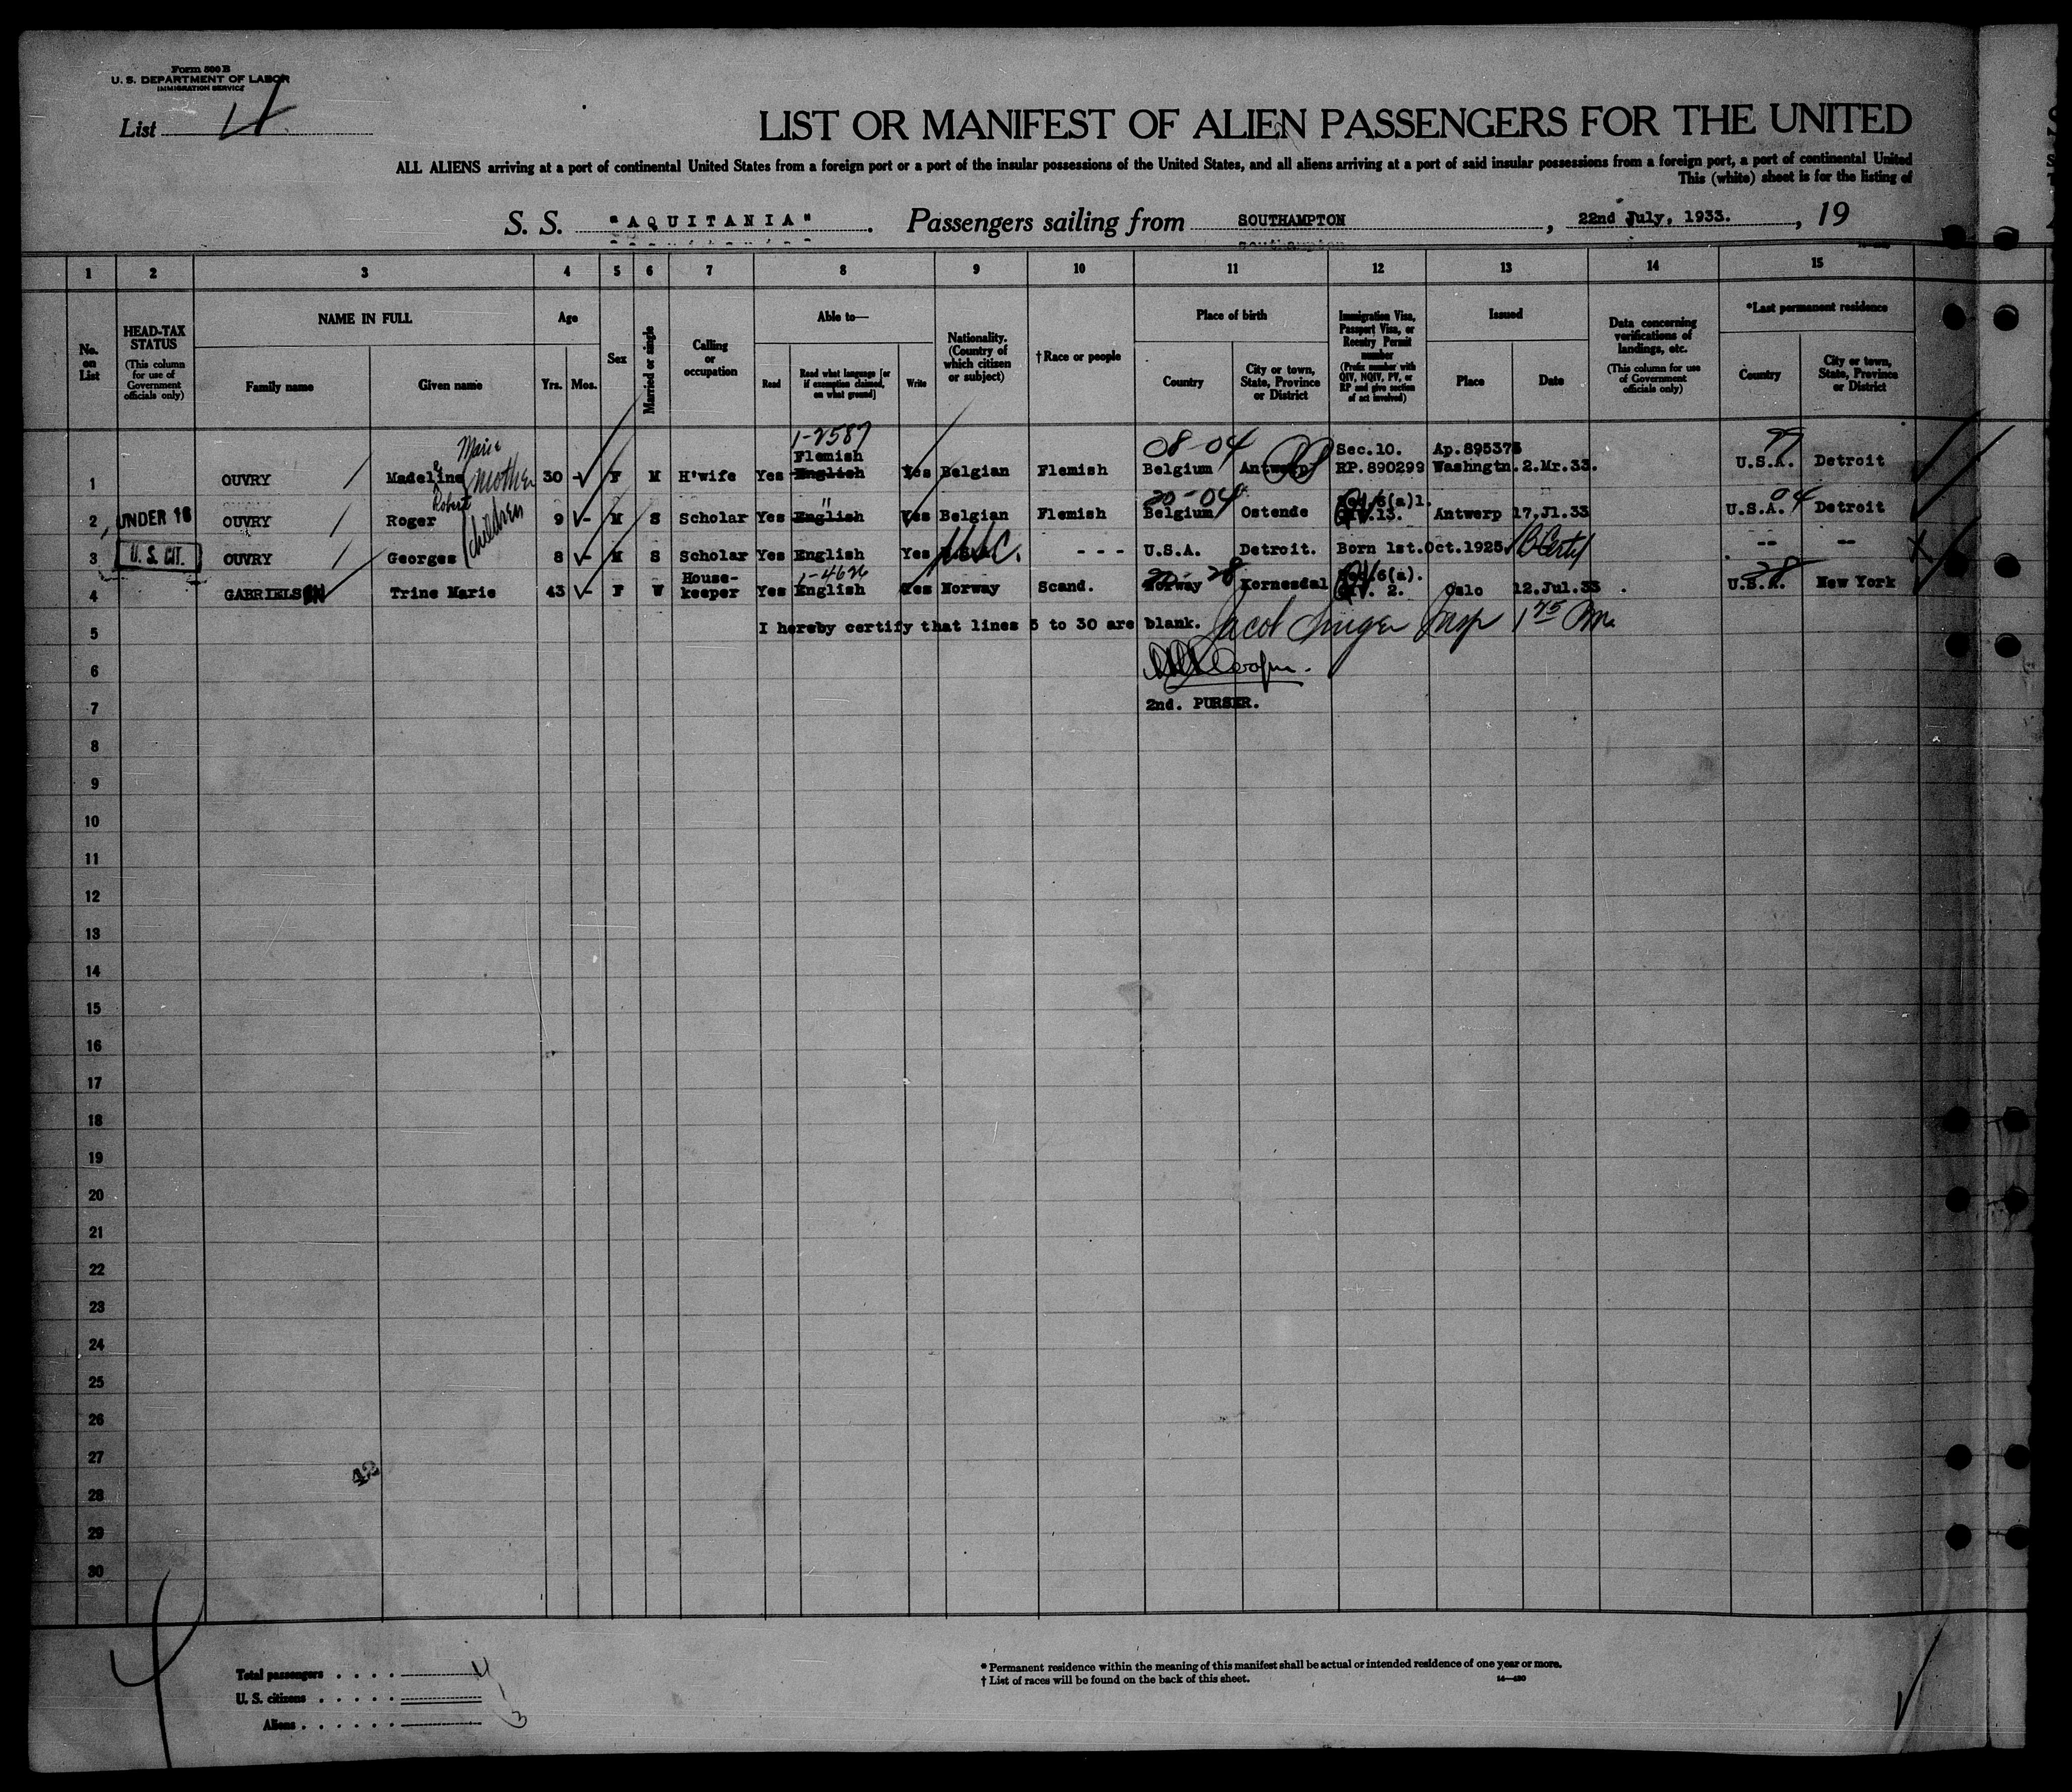 Form 500 B
U. S. DEPARTMENT OF LABOR
IMMIGRATION SERVICE
List 4
LIST OR MANIFEST OF ALIEN PASSENGERS FOR THE UNITED
ALL ALIENS arriving at a port of continental United States from a foreign port or a port of the insular possessions of the United States, and all aliens arriving at a port of said insular possessions from a foreign port, a port of continental United
This (white) sheet is for the listing of
S. S. "AQUITANIA". Passengers sailing from SOUTHAMPTON, 22nd July, 1933., 19
1 2 3 4 5 6 7 8 9 10 11 12 13 14 15
No. on List
HEAD-TAX STATUS (This column for use of Government officials only)
NAME IN FULL
Family name
Given name
Age
Yrs. Mos.
Sex
Married or single
Calling or occupation
Able to—
Read
Read what language [or if exemption claimed, on what ground]
Write
Nationality. (Country of which citizen or subject)
†Race or people
Place of birth
Country
City or town, State, Province or District
Immigration Visa, Passport Visa, or Reentry Permit number (Prefix number with QIV, NQIV, PV, or RP and give section of act involved)
Issued
Place
Date
Data concerning verifications of landings, etc. (This column for use of Government officials only)
*Last permanent residence
Country
City or town, State, Province or District
Marie 1-2587 08-04 99
Flemish Sec.10. Ap.895375
1 OUVRY Madeline Mother 30 - F M H'wife Yes English Yes Belgian Flemish Belgium Antwerp RP.890299 Washngtn. 2.Mr.33. U.S.A. Detroit
Robert " 20-04 6(a)1. 04
2 UNDER 16 OUVRY Roger children 9 - M S Scholar Yes English Yes Belgian Flemish Belgium Ostende QIV.13. Antwerp 17.Jl.33 U.S.A. Detroit
3 U. S. CIT. OUVRY Georges 8 - M S Scholar Yes English Yes USC. - - - U.S.A. Detroit. Born 1st.Oct.1925. B Certf -- --
House- 1-4626 28 6(a). 28
4 GABRIELSEN Trine Marie 43 - F W keeper Yes English Yes Norway Scand. Norway Kornesdal QIV. 2. Oslo 12.Jul.33 U.S.A. New York
5 I hereby certify that lines 5 to 30 are blank. Jacob Insp
6
7 2nd. PURSER.
8
9
10
11
12
13
14
15
16
17
18
19
20
21
22
23
24
25
26
27
42
28
29
30
Total passengers . . . . 4
U. S. citizens . . . . . 1
Aliens . . . . . . 3
* Permanent residence within the meaning of this manifest shall be actual or intended residence of one year or more.
† List of races will be found on the back of this sheet.
14—430